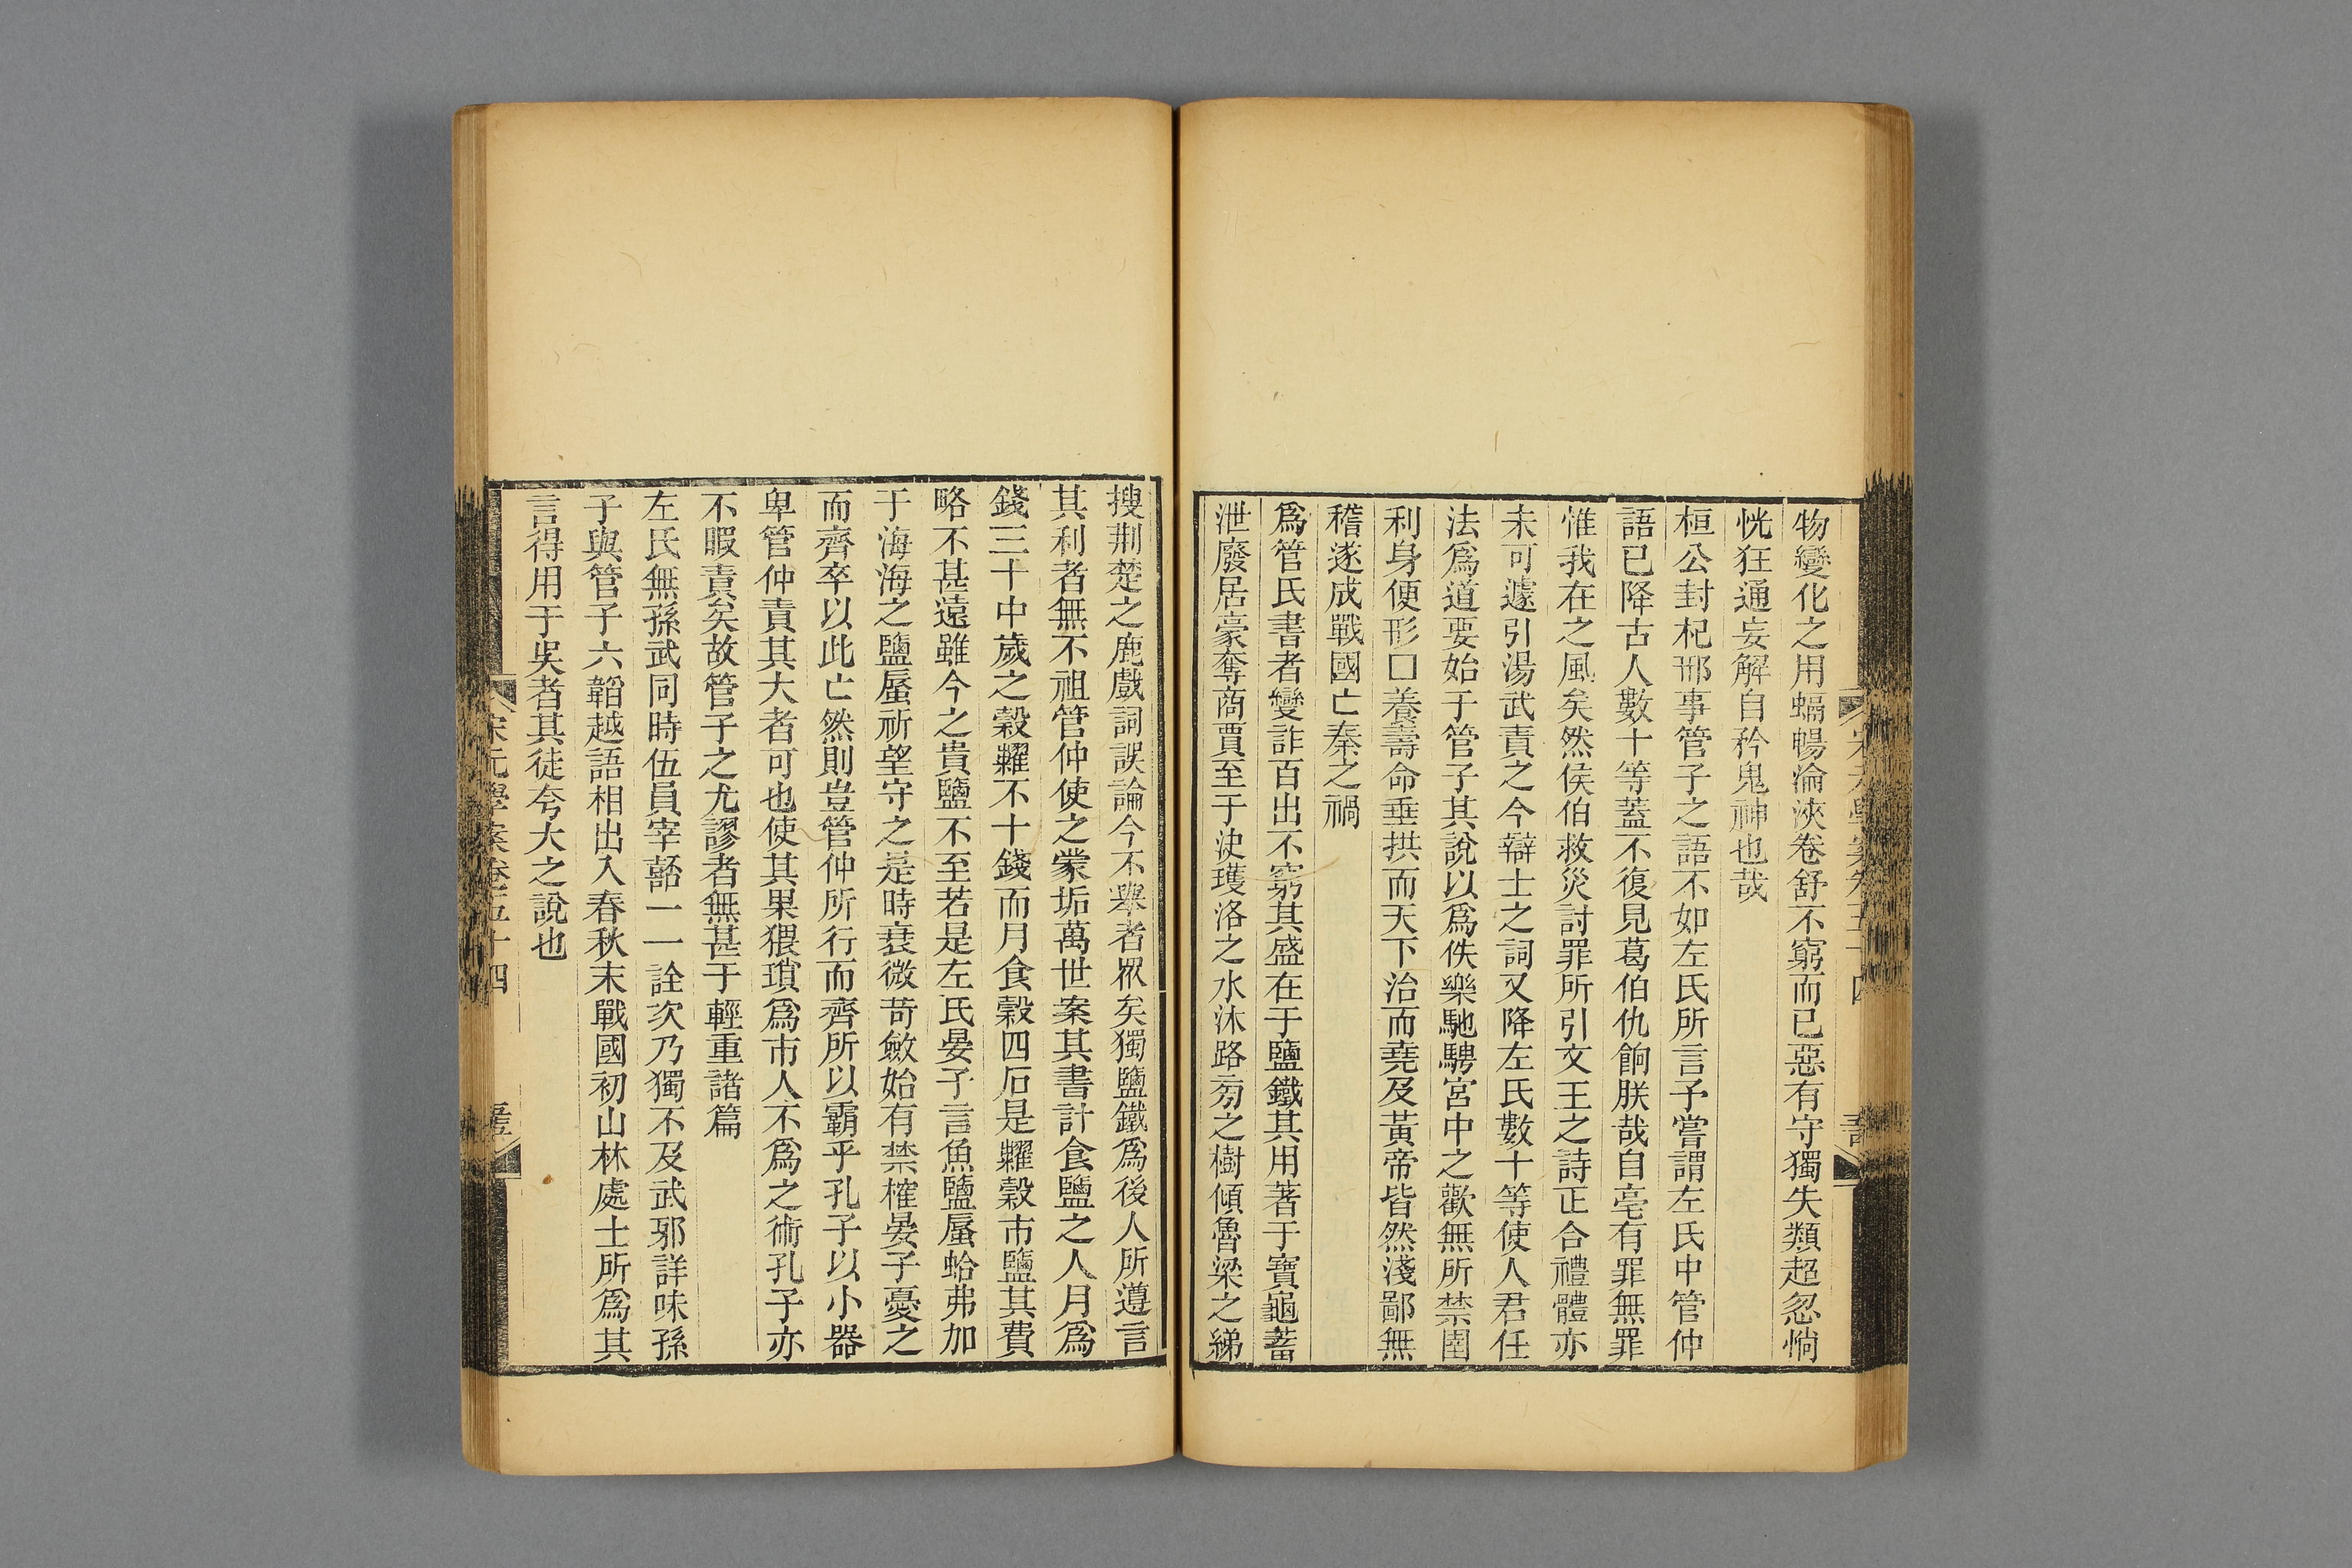 物變化之用蝹暢淪浹卷舒不窮而已惡有守獨失類超忽惝
恍狂通妄解自矜鬼神也哉
桓公封杞邢事管子之語不如左氏所言予嘗謂左氏中管仲
語已降古人數十等蓋不復見葛伯仇餉朕哉自亳有罪無罪
惟我在之風矣然侯伯救災討罪所引文王之詩正合禮體亦
未可遽引湯武責之今辯士之詞又降左氏數十等使人君任
法爲道要始于管子其說以爲佚樂馳騁宮中之歡無所禁圉
利身便形口養壽命垂拱而天下治而堯及黃帝皆然淺鄙無
稽遂成戰國亡秦之禍
爲管氏書者變詐百出不窮其盛在于鹽鐵其用著于寶龜蓄
泄廢居豪奪商賈至于決瓁洛之水沐路旁之樹傾魯梁之綈
搜荆楚之鹿戲詞誤論今不舉者眾矣獨鹽鐵爲後人所遵言
其利者無不祖管仲使之蒙垢萬世案其書計食鹽之人月爲
錢三十中歲之穀糶不十錢而月食穀四石是糶穀市鹽其費
略不甚遠雖今之貴鹽不至若是左氏晏子言魚鹽蜃蛤弗加
于海海之鹽蜃祈望守之是時衰微苛斂始有禁榷晏子憂之
而齊卒以此亡然則豈管仲所行而齊所以霸乎孔子以小器
卑管仲責其大者可也使其果猥瑣爲市人不爲之術孔子亦
不暇責矣故管子之尤謬者無甚于輕重諸篇
左氏無孫武同時伍員宰嚭一一詮次乃獨不及武邪詳味孫
子與管子六韜越語相出入春秋末戰國初山林處士所爲其
言得用于吳者其徒夸大之說也
宋元學案卷五十四